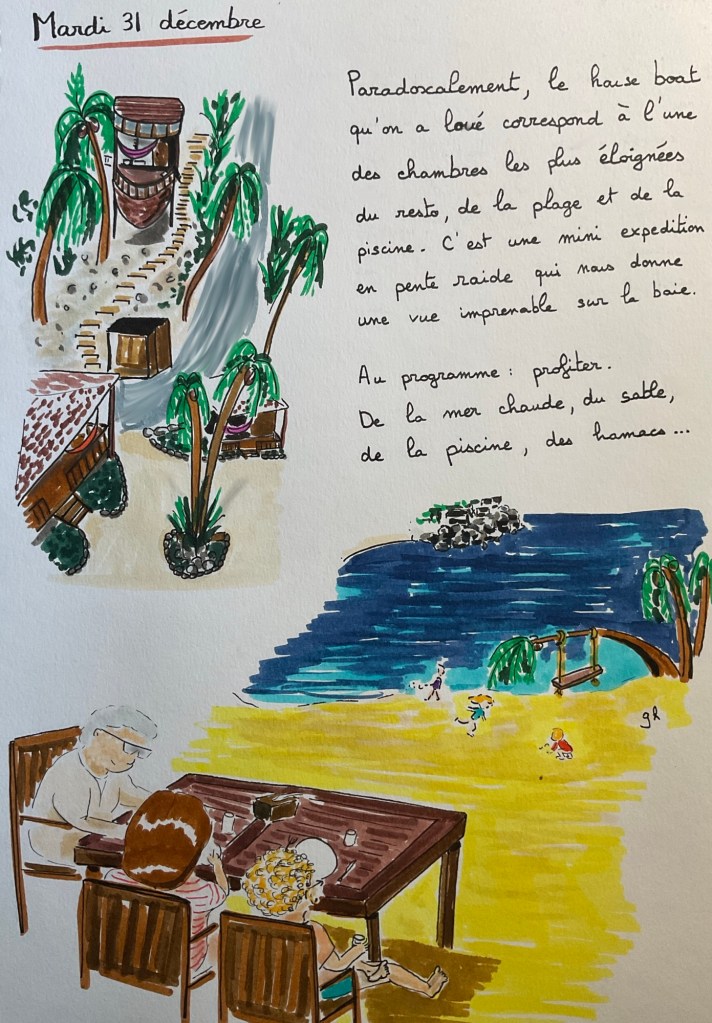 Mardi 31 décembre
Paradoxalement, le house boat
qu'on a loué correspond à l'une
des chambres les plus éloignées
du resto, de la plage et de la
piscine. C'est une mini expedition
en pente raide qui nous donne
une vue imprenable sur la baie.
Au programme : profiter.
De la mer chaude, du sable,
de la piscine, des hamacs...